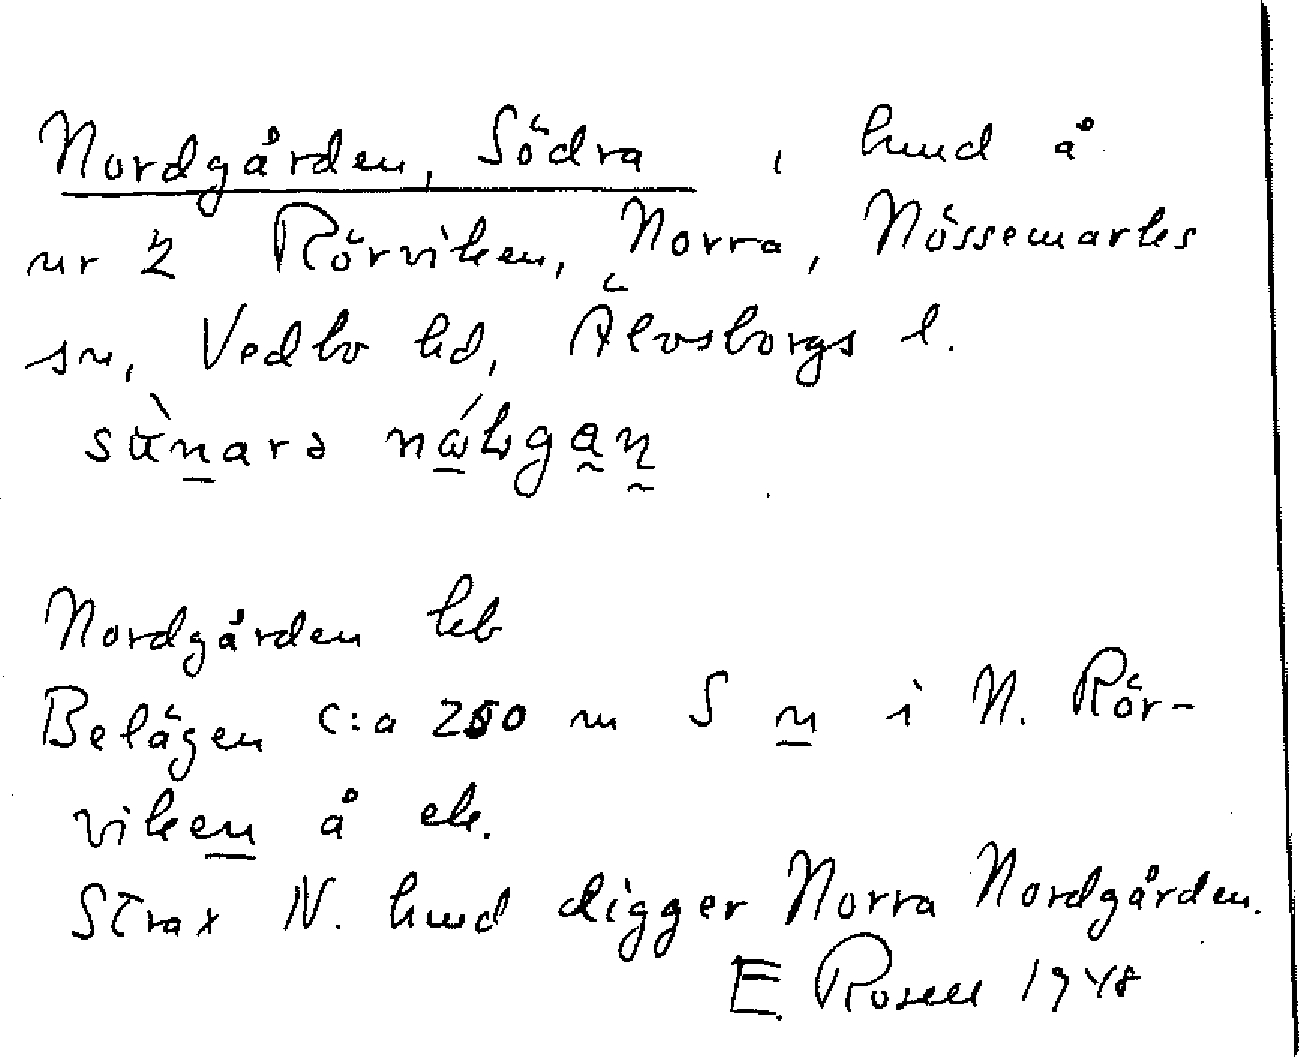 Nordgården, Södra, hmd å
nr 2 Rörviken, Norra, Nössemarks
sn, Vedbo hd, Älvsborgs l.
Nordgården kb
Belägen c:a 250 m S n i N. Rör-
viken å ek.
Strax N. hmd ligger Norra Nordgården.
E. Rosell 1948